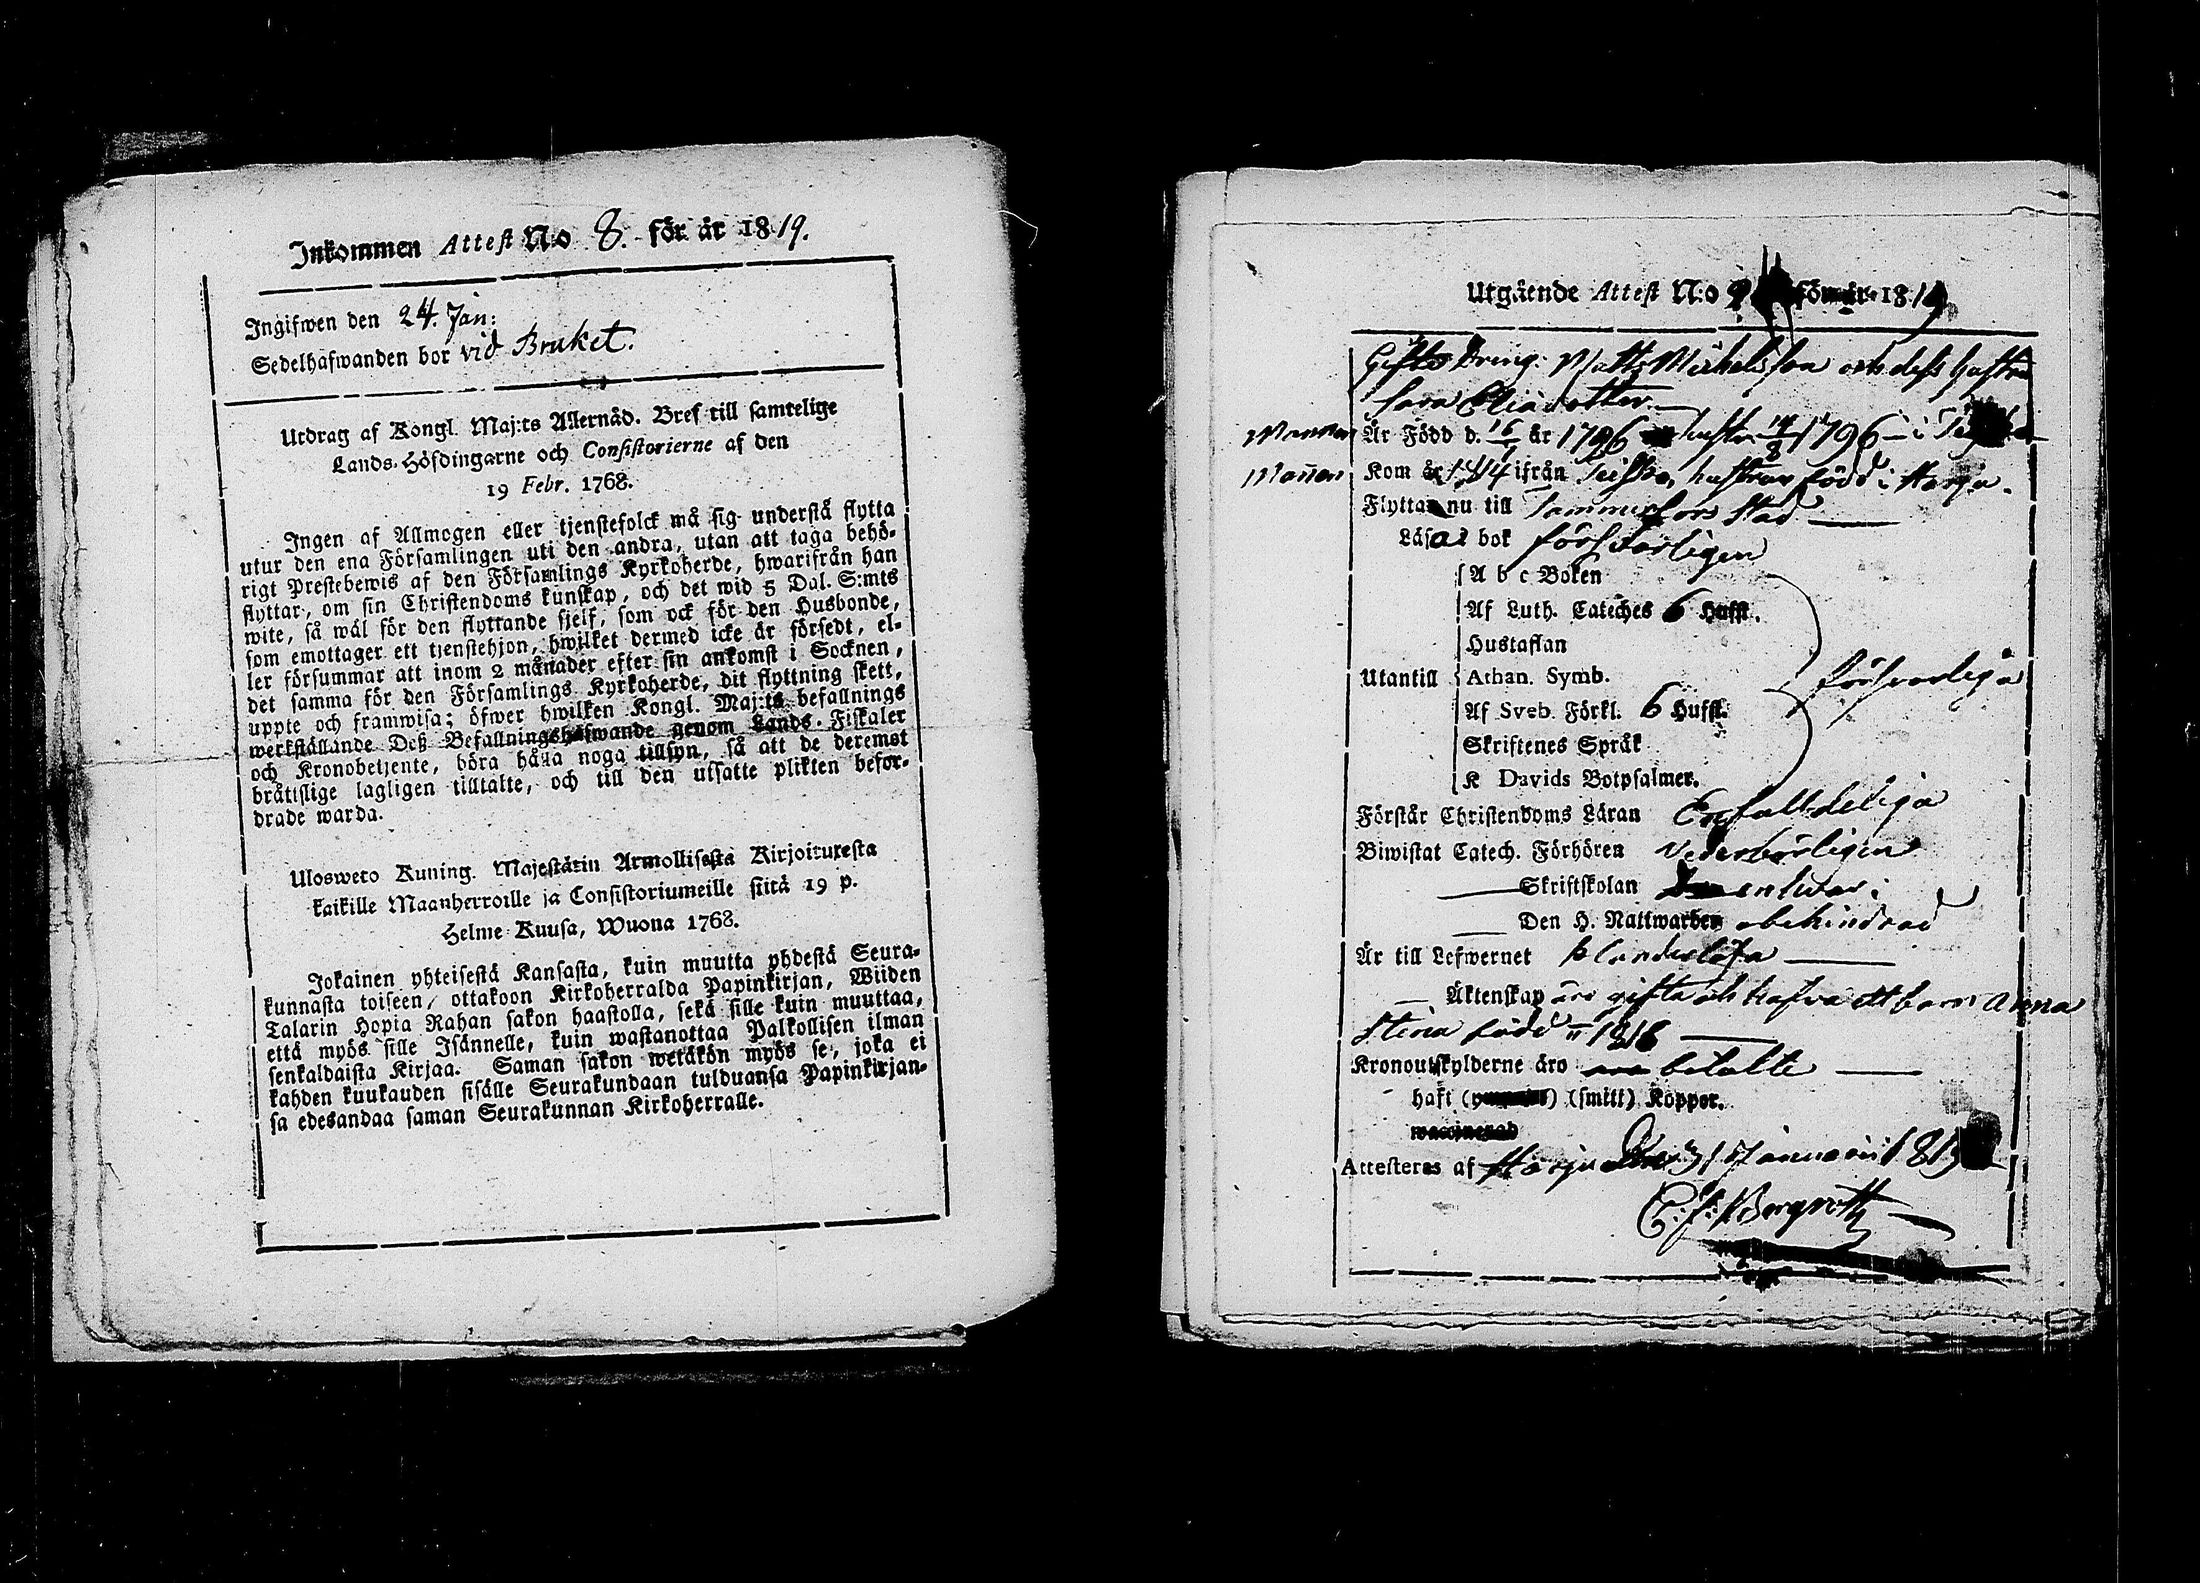 Inkommen Attest N:o 8. för år 1819.
Ingifwen den 24. Jan:
Sedelhafwanden bor vid Bruket.
Utdrag af Kongl. Maj:ts Allernåd. Bref till samtelige
Lands-Höfdingarne och Consistorierne af den
19 Febr. 1768.
Ingen af Allmogen eller tjenstefolck må sig understå flytta
utur den ena Församlingen uti den andra, utan att taga behö-
rigt Prestebewis af den Församlings Kyrkoherde, hwarifrån han
flyttar, om sin Christendoms kunskap, och det wid 5 Dal. S:mts
wite, så wäl för den flyttande sjelf, som ock för den Husbonde,
som emottager ett tjenstehjon, hwilket dermed icke är försedt, el-
ler försummar att inom 2 månader efter sin ankomst i Socknen,
det samma för den Församlings Kyrkoherde, dit flyttning skett,
uppte och framwisa; öfwer hwilken Kongl. Maj:ts befallnings
werkställande Deß Befallningshafwande genom Lands-Fiskaler
och Kronobetjente, böra hålla noga tillsyn, så att de deremot
bråttslige lagligen tilltalte, och till den utsatte plikten befor-
drade warda.
Ulosweto Kuning. Majestätin Armollisesta Kirjoituxesta
kaikille Maanherroille ja Consistoriumeille siitä 19 p.
Helme-Kuusa, Wuona 1768.
Jokainen yhteisestä Kansasta, kuin muutta yhdestä Seura-
kunnasta toiseen, ottakoon Kirkoherralda Papinkirjan, Wiiden
Talarin Hopia Rahan sakon haastolla, sekä sille kuin muuttaa,
että myös sille Isännelle, kuin wastanottaa Palkollisen ilman
senkaldaista Kirjaa. Saman sakon wetäkön myös se, joka ei
kahden kuukauden sisälle Seurakundaan tulduansa Papinkirjan-
sa edesandaa saman Seurakunnan Kirkoherralle.
Utgående Attest N:o för år 1819
Gifte Dreng: Matts Michelsson och dess hustru
Sara Eliædotter
Mannen Är Född d. 16 år 1796 hustrun 14/8 1796 i
Mannen Kom år 1814 ifrån Teisko, hustrun född i Harju.
Flyttar nu till Tammerfors Stad
Läsa i bok försvarligen
A b c Boken
Af Luth. Cateches 6 Hufst.
Hustaflan
Utantill Athan. Symb. försvarliga
Af Sveb. Förkl. 6 Hufst.
Skriftenes Språk
K Davids Botpsalmer.
Förstår Christendoms Läran Enfalldeliga
Biwistat Catech. Förhören vederbörligen
Skriftskolan
Den H. Nattwarden obehindrad
Är till Lefwernet klanderlösa
Äktenskap äro gifta och hafva ett barn Anna
Stina född 1818
Kronoutskylderne äro betalte
haft (smitt) Koppor.
Attesteras af Harju den 31 Januarii 1819
C: J: Bergroth